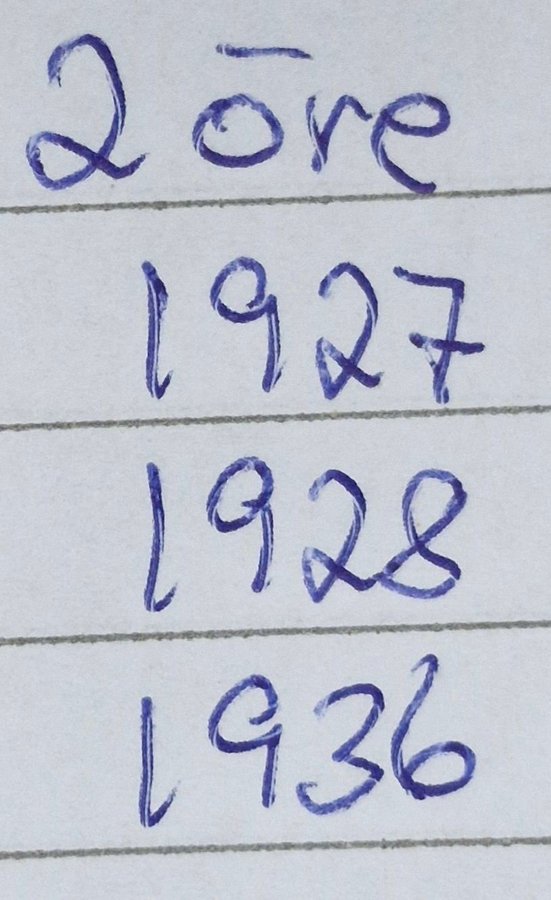 2 öre
1927
1928
1936